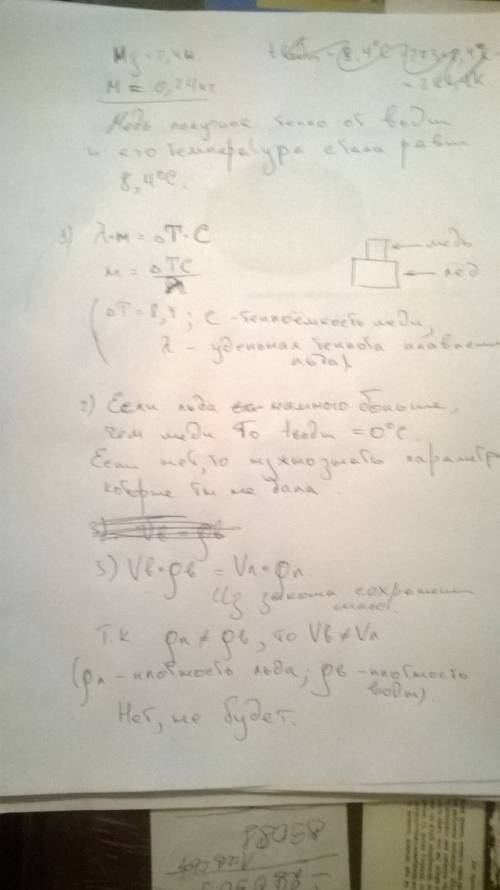 m = 0,24кг
Медь получила тепло от воды
и его температура стала равна
8,4°С.
1) λ·m = ΔT·C
m = ΔTC/λ
← медь
← лёд
(ΔT = 8,4; C - теплоёмкость меди,
λ - удельная теплота плавлени
льда)
2) Если льда намного больше,
чем меди то tводы = 0°С.
Если нет, то нужно знать параметры
которые ты не дала.
3) Vв·ρв = Vл·ρл.
Из закона сохранения
масс.
Тк ρл ≠ ρв, то Vв ≠ Vл
(ρл - плотность льда; ρв - плотность
воды).
Нет, не будет.